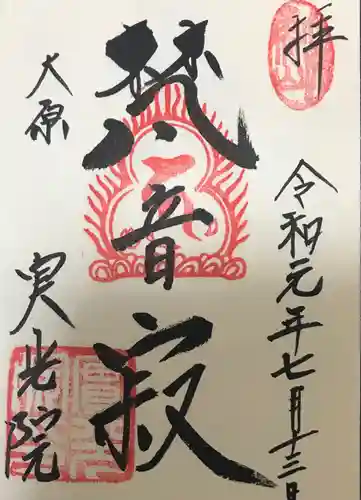 奉拝
令和元年七月十三日
梵音寂
大原
実光院